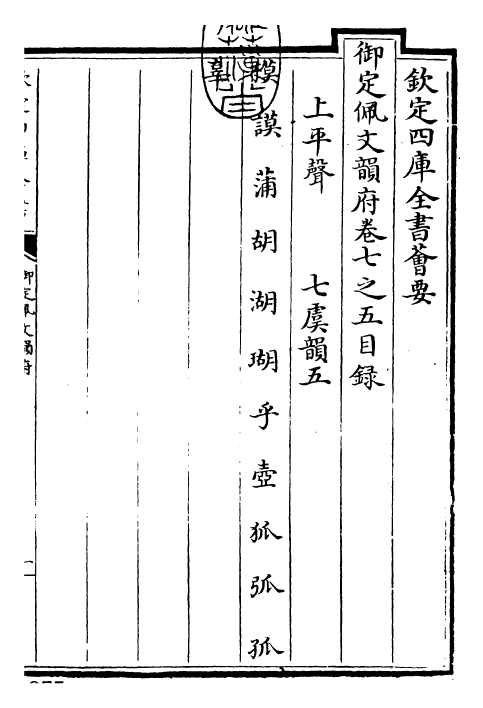 欽定四庫全書薈要
御定佩文韻府卷七之五目錄
上平聲　七虞韻五
模謨蒲胡湖瑚乎壺狐弧孤
御定佩文韻府